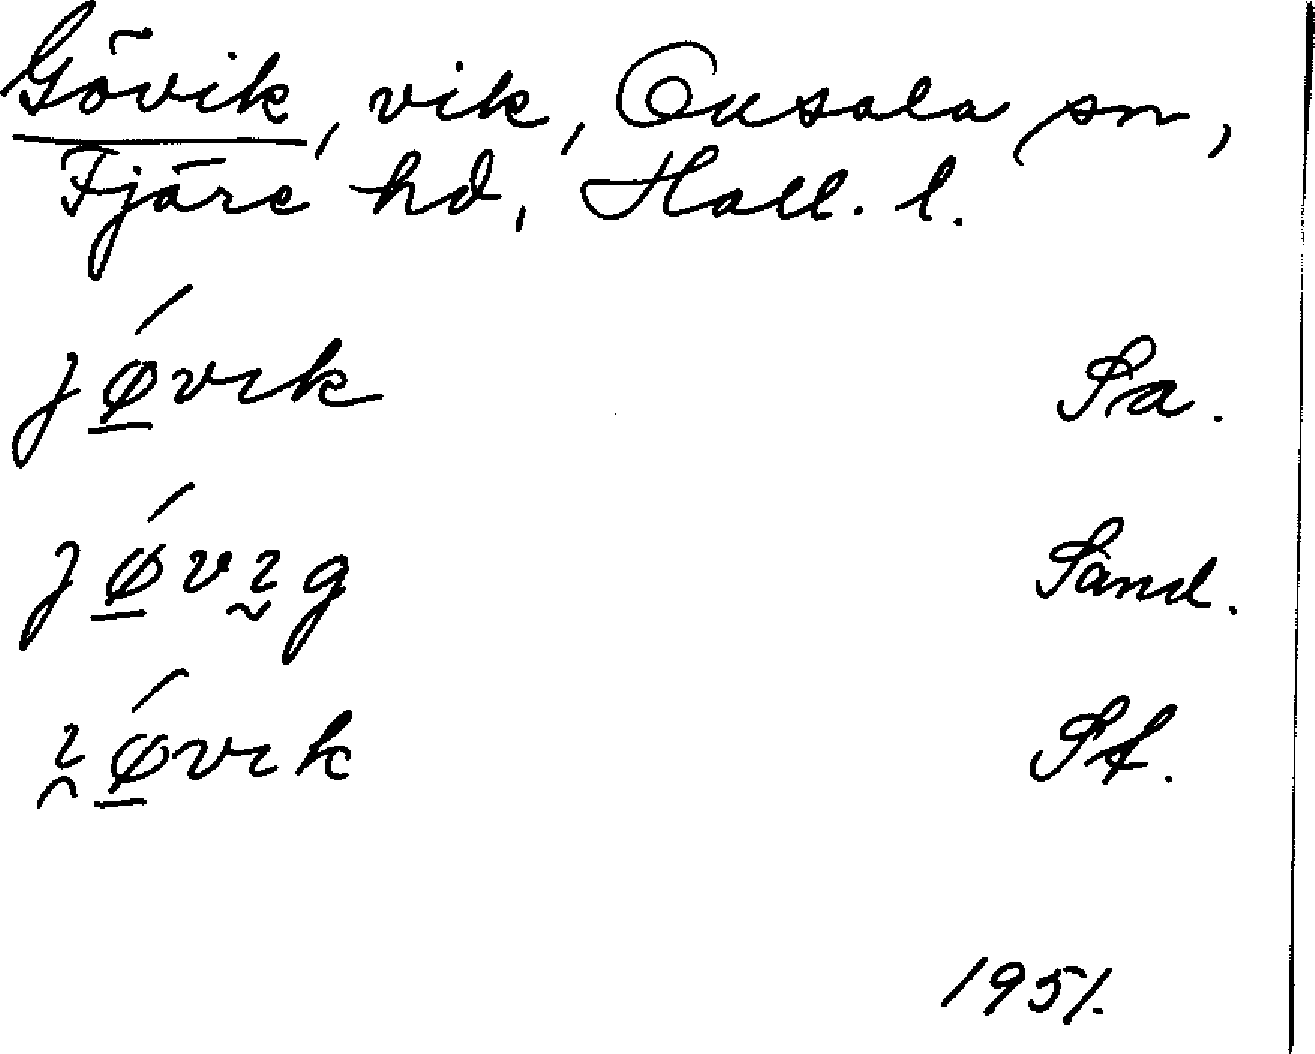 Gövik, vik, Onsala sn,
Fjäre hd, Hall. l.
jǿ̲vık Sa.
jǿ̲vı̰g Sand.
ı̯ǿ̲vık St.
1951.